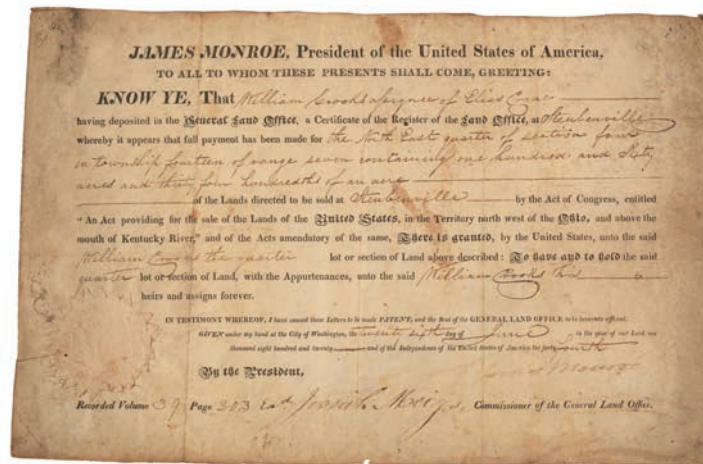 JAMES MONROE, President of the United States of America,
TO ALL TO WHOM THESE PRESENTS SHALL COME, GREETING:
KNOW YE, That William Crooks assignee of Elias
having deposited in the General Land Office, a Certificate of the Register of the Land Office, at Steubenville
whereby it appears that full payment has been made for the North East quarter of section four
in township fourteen of range seven containing one hundred and Sixty
acres and thirty four hundredths of an acre
of the Lands directed to be sold at Steubenville by the Act of Congress, entitled
"An Act providing for the sale of the Lands of the United States, in the Territory north west of the Ohio, and above the
mouth of Kentucky River," and of the Acts amendatory of the same, There is granted, by the United States, unto the said
William Crooks the quarter lot or section of Land above described: To have and to hold the said
quarter lot or section of Land, with the Appurtenances, unto the said William Crooks his
heirs and assigns forever.
IN TESTIMONY WHEREOF, I have caused these Letters to be made PATENT, and the Seal of the GENERAL LAND OFFICE to be hereunto affixed.
GIVEN under my hand at the City of Washington, the twenty sixth day of June in the year of our Lord one
thousand eight hundred and twenty and of the Independence of the United States of America the forty fourth
By the President, James Monroe
Recorded Volume 39 Page 303 Josiah Meigs, Commissioner of the General Land Office.